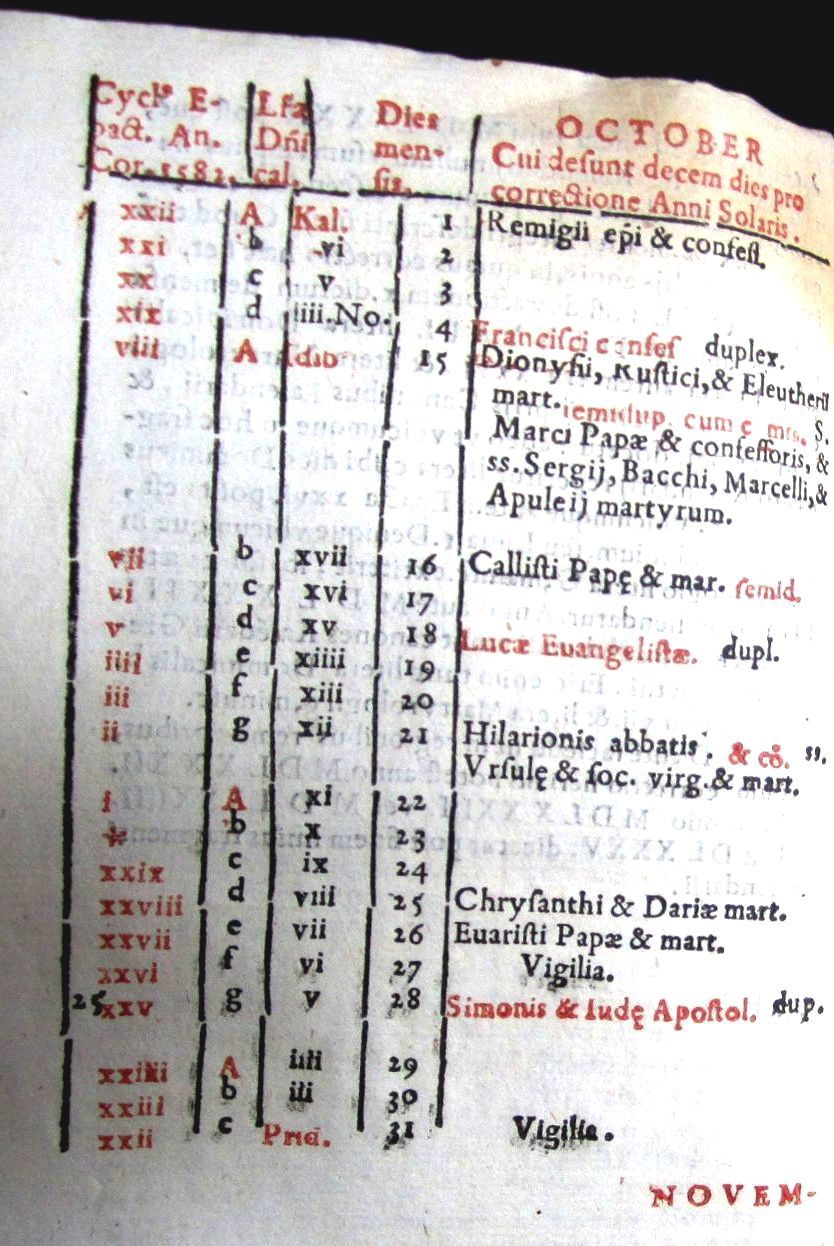 Cycl⁹ E- Lr̃a Dies OCTOBER
pact. An. Dñi men- Cui desunt decem dies pro
Cor. 1582. cal. sis. correctione Anni Solaris.
xxii A Kal. 1 Remigii ep̃i & confess.
xxi b vi 2
xx c v 3
xix d iiii. No. 4 Francisci confes duplex.
viii A Idib 15 Dionysii, Rustici, & Eleutherii
mart. semidup. cum c̄ mts. S.
Marci Papæ & confessoris, &
ss. Sergij, Bacchi, Marcelli, &
Apuleij martyrum.
vii b xvii 16 Callisti Papę & mar. semid.
vi c xvi 17
v d xv 18 Lucæ Euangelistæ. dupl.
iiii e xiiii 19
iii f xiii 20
ii g xii 21 Hilarionis abbatis. & cõ. ss.
Vrsulę & soc. virg. & mart.
i A xi 22
* b x 23
xxix c ix 24
xxviii d viii 25 Chrysanthi & Dariæ mart.
xxvii e vii 26 Euaristi Papæ & mart.
xxvi f vi 27 Vigilia.
25 xxv g v 28 Simonis & Iudę Apostol. dup.
xxiiii A iiii 29
xxiii b iii 30
xxii c Prid. 31 Vigilia.
NOVEM-